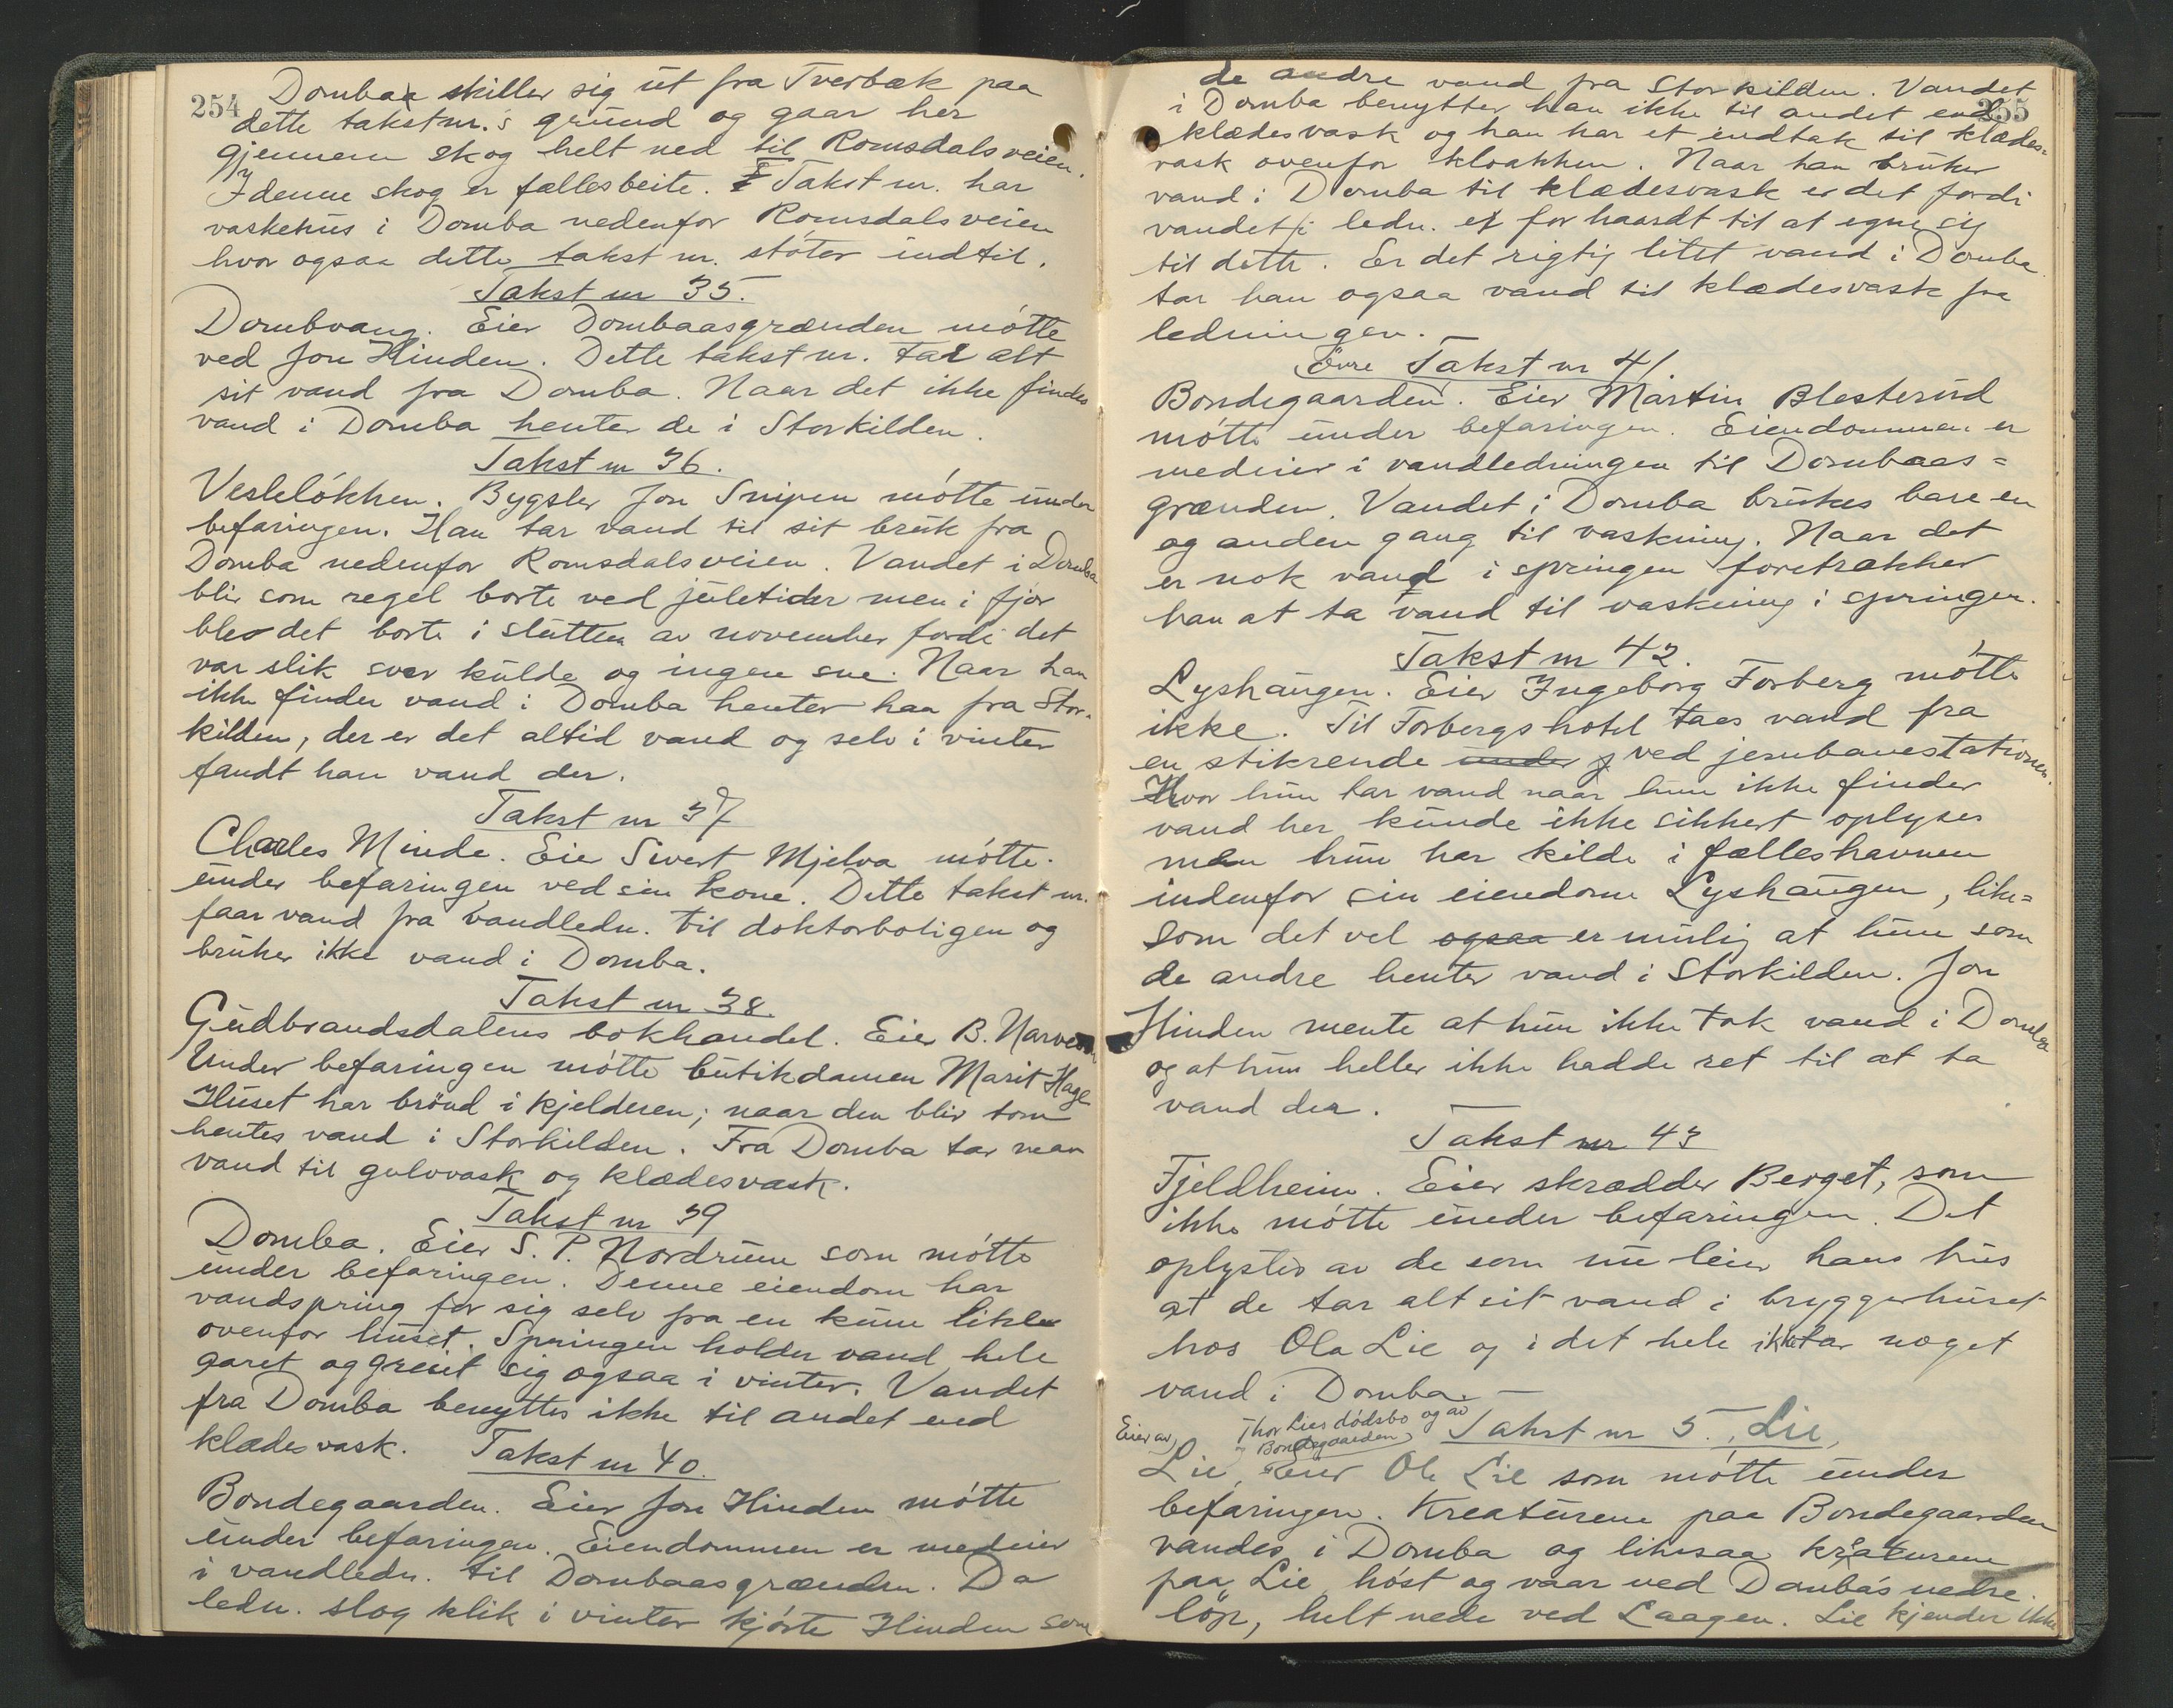 254
Dombaa skiller sig ut fra Tverbæk paa
dette takstnr.'s grund og gaar her
gjennem skog helt ned til Romsdalsveien.
I denne skog er fællesbeite. Takst nr. har
vaskehus i Domba nedenfor Romsdalsveien
hvor ogsaa dette takst nr. støter indtil.
Takst nr 35.
Dombvang. Eier Dombaasgrænden møtte
ved Jon Hinden. Dette takst nr. tar alt
sit vand fra Domba. Naar det ikke findes
vand i Domba henter de i Storkilden.
Takst nr 36.
Vesleløkken. Bygsler Jon Snipen møtte under
befaringen. Han tar vand til sit bruk fra
Domba nedenfor Romsdalsveien. Vandet i Domba
blir som regel borte ved juletider men i fjor
blev det borte i slutten av november fordi det
var slik svær kulde og ingen sne. Naar han
ikke finder vand i Domba henter han fra Stor-
kilden, der er det altid vand og selv i vinter
fandt han vand der.
Takst nr 37
Charles Minde. Eier Sivert Mjelva møtte
under befaringen ved sin kone. Dette takst nr.
faar vand fra vandledn. til doktorboligen og
bruker ikke vand i Domba.
Takst nr 38.
Gudbrandsdalens bokhandel. Eier B. Narvesen
Under befaringen møtte butikdamen Marit Hage
Huset har brønd i kjelderen; naar den blir tom
hentes vand i Storkilden. Fra Domba tar man
vand til gulvvask og klædesvask.
Takst nr 39
Domba. Eier S. P. Nordrum som møtte
under befaringen. Denne eiendom har
vandspring for sig selv fra en kum like
ovenfor huset. Springen holder vand hele
aaret og greiet sig ogsaa i vinter. Vandet
fra Domba benyttes ikke til andet end
klædesvask. Takst nr 40.
Bondegaarden. Eier Jon Hinden møtte
under befaringen. Eiendommen er medeier
i vandledn. til Dombaasgrænden. Da
ledn. slog klik i vinter kjørte Hinden som
255
de andre vand fra Storkilden. Vandet
i Domba benytter han ikke til andet end
klædesvask og han har et indtak til klædes-
vask ovenfor kloakken. Naar han bruker
vand i Domba til klædesvask er det fordi
vandet i ledn. er for haardt til at egne sig
til dette. Er det rigtig litet vand i Domba
tar han ogsaa vand til klædesvask fra
ledningen.
Øvre Takst nr 41.
Bondegaarden. Eier Martin Blesterud
møtte under befaringen. Eiendommen er
medeier i vandledningen til Dombaas-
grænden. Vandet i Domba brukes bare en
og anden gang til vaskning. Naar det
er nok vand i springen foretrækker
han at ta vand til vaskning i springen.
Takst nr 42.
Lyshaugen. Eier Ingeborg Forberg møtte
ikke. Til Forbergs hotel taes vand fra
en stikrende under j ved jernbanestationen.
Hvor hun tar vand naar hun ikke finder
vand her kunde ikke sikkert oplyses
men hun har kilde i fælleshavnen
indenfor sin eiendom Lyshaugen, like-
som det vel ogsaa er mulig at hun som
de andre henter vand i Storkilden. Jon
Hinden mente at hun ikke tok vand i Domba
og at hun heller ikke hadde ret til at ta
vand der.
Takst nr 43
Fjeldheim. Eier skrædder Berget, som
ikke møtte under befaringen. Det
oplystes av de som nu leier hans hus
at de tar alt sit vand i bryggerhuset
hos Ola Lie og i det hele ikke tar noget
vand i Domba. —
Eier av Thor Lies dødsbo og av Takst nr 5. Lie,
og Bondegaarden
Lie, Eier Ole Lie som møtte under
befaringen. Kreaturene paa Bondegaarden
vandes i Domba og likesaa kreaturene
paa Lie, høst og vaar ved Domba's nedre
løp, helt nede ved Laagen. Lie kjender ikke